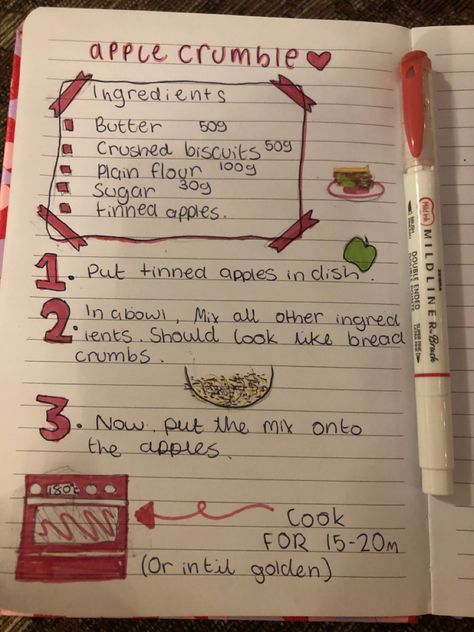 apple crumble
Ingredients
Butter 50g
Crushed biscuits 50g
Plain flour 100g
Sugar 30g
tinned apples.
1. Put tinned apples in dish.
2. In a bowl, Mix all other ingred
ients. Should look like bread
crumbs.
3. Now, put the mix onto
the apples.
180°c
Cook
FOR 15-20m
(Or intil golden)
Mild ink
ZEBRA
MILDLINER Brush
DOUBLE ENDED